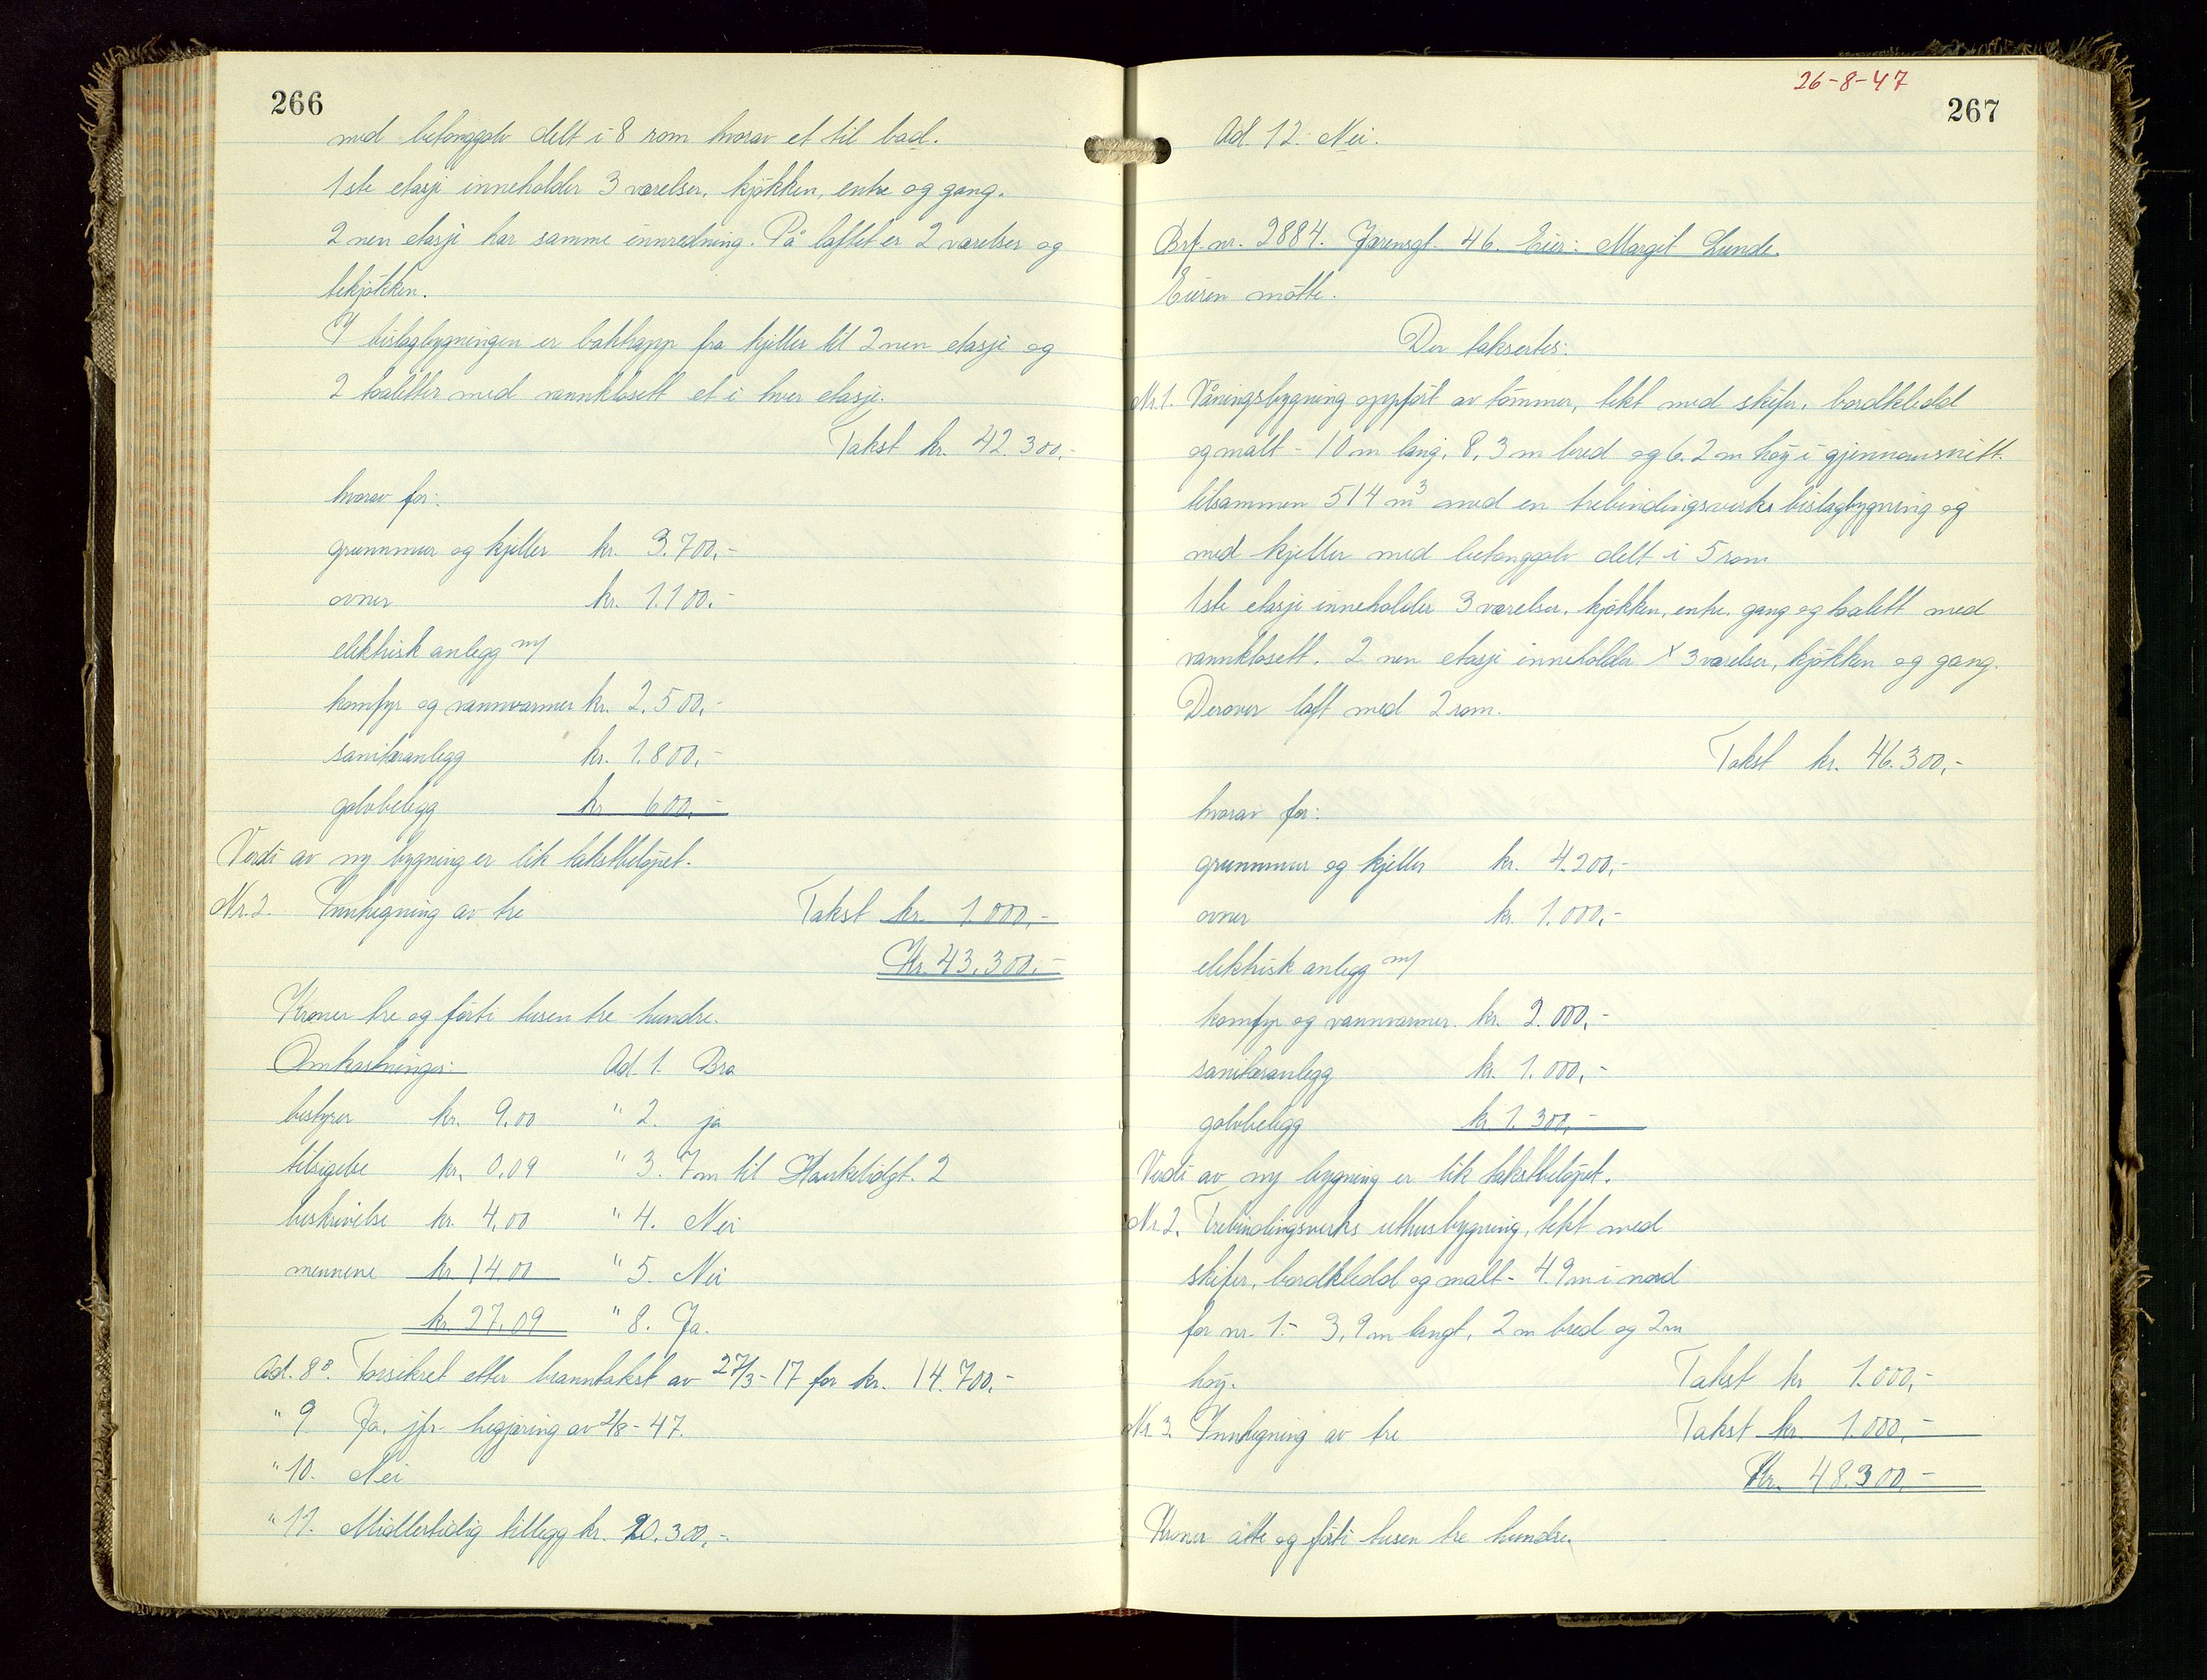 266
med betonggolv delt i 8 rom hvorav et til bad.
1ste etasje inneholder 3 værelser, kjøkken, entre og gang.
2nen etasje har samme innredning. På loftet er 2 værelser og
tekjøkken.
I bislagbygningen er baktrapp fra kjeller til 2nen etasje og
2 toaletter med vannklosett et i hver etasje.
Takst kr. 42.300,-
hvorav for:
grunnmur og kjeller kr. 3.700,-
ovner kr. 1.100,-
elektrisk anlegg m/
komfyr og vannvarmer kr. 2.500,-
sanitæranlegg kr. 1.800,-
golvbelegg kr 600,-
Verdi av ny bygning er lik takstbeløpet.
Nr. 2. Innhegning av tre Takst kr. 1.000,-
Kr. 43.300,-
Kroner tre og førti tusen tre hundre.
Omkostninger: Ad. 1. Bra
bestyrer kr. 9,00 " 2. ja
tilsigelse kr. 0,09 " 3. 7m til Haukeligt. 2
beskrivelse kr. 4,00 " 4. Nei
mennene kr. 14.00 " 5. Nei
kr. 27,09 " 8. Ja.
Ad. 8ᴮ. Forsikret etter branntakst av 27/3-17 for kr. 14.700,-
" 9. Ja, jfr. begjæring av 2/8-47.
" 10. Nei
" 11. Midlertidig tillegg kr. 20.300,-
26-8-47
267
Ad. 12. Nei.
Brf. nr. 2884. Jærensgt. 46. Eier: Margit Lunde.
Eieren møtte.
Der taksertes:
Nr. 1. Våningsbygning oppført av tømmer, tekt med skifer, bordkledd
og malt - 10 m lang, 8,3 m bred og 6.2 m høy i gjennomsnitt.
tilsammen 514 m³ med en trebindingsverks bislagbygning og
med kjeller med betonggolv delt i 5 rom
1ste etasje inneholder 3 værelser, kjøkken, entre, gang og toalett med
vannklosett. 2 nen etasje inneholder 3 værelser, kjøkken og gang.
Derover loft med 2 rom.
Takst kr. 46.300,-
hvorav for:
grunnmur og kjeller kr. 4.200,-
ovner kr. 1.000,-
elektrisk anlegg m/
komfyr og vannvarmer. kr. 2.000,-
sanitæranlegg kr. 1.000,-
golvbelegg kr 1.300,-
Verdi av ny bygning er lik takstbeløpet.
Nr. 2. Trebindingsverks uthusbygning, tekt med
skifer, bordkledd og malt - 4.9 m i nord
for nr. 1.- 3,9 m langt, 2 m bred og 2 m
høy. Takst kr 1.000,-
Nr. 3. Innhegning av tre Takst kr. 1.000,-
Kr. 48.300,-
Kroner åtte og førti tusen tre hundre.